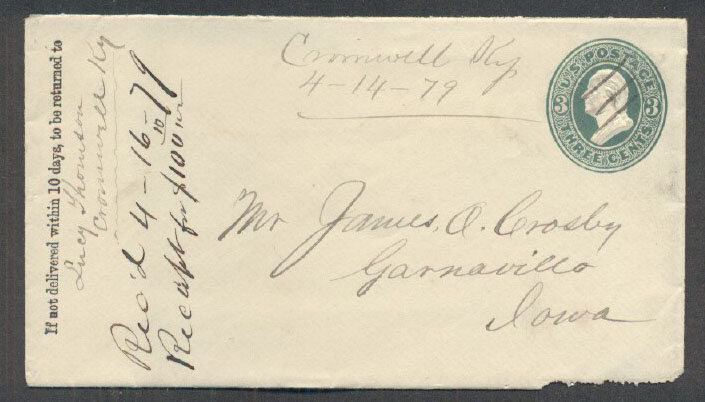 If not delivered within 10 days, to be returned to
Lucy Thomson
Cromwell Ky
Rec'd 4-16-79
10
Recapt for $100
Cromwell Ky
4-14-79
U.S. POSTAGE
3 3
THREE CENTS
Mr James, O. Crosby
Garnavillo
Iowa